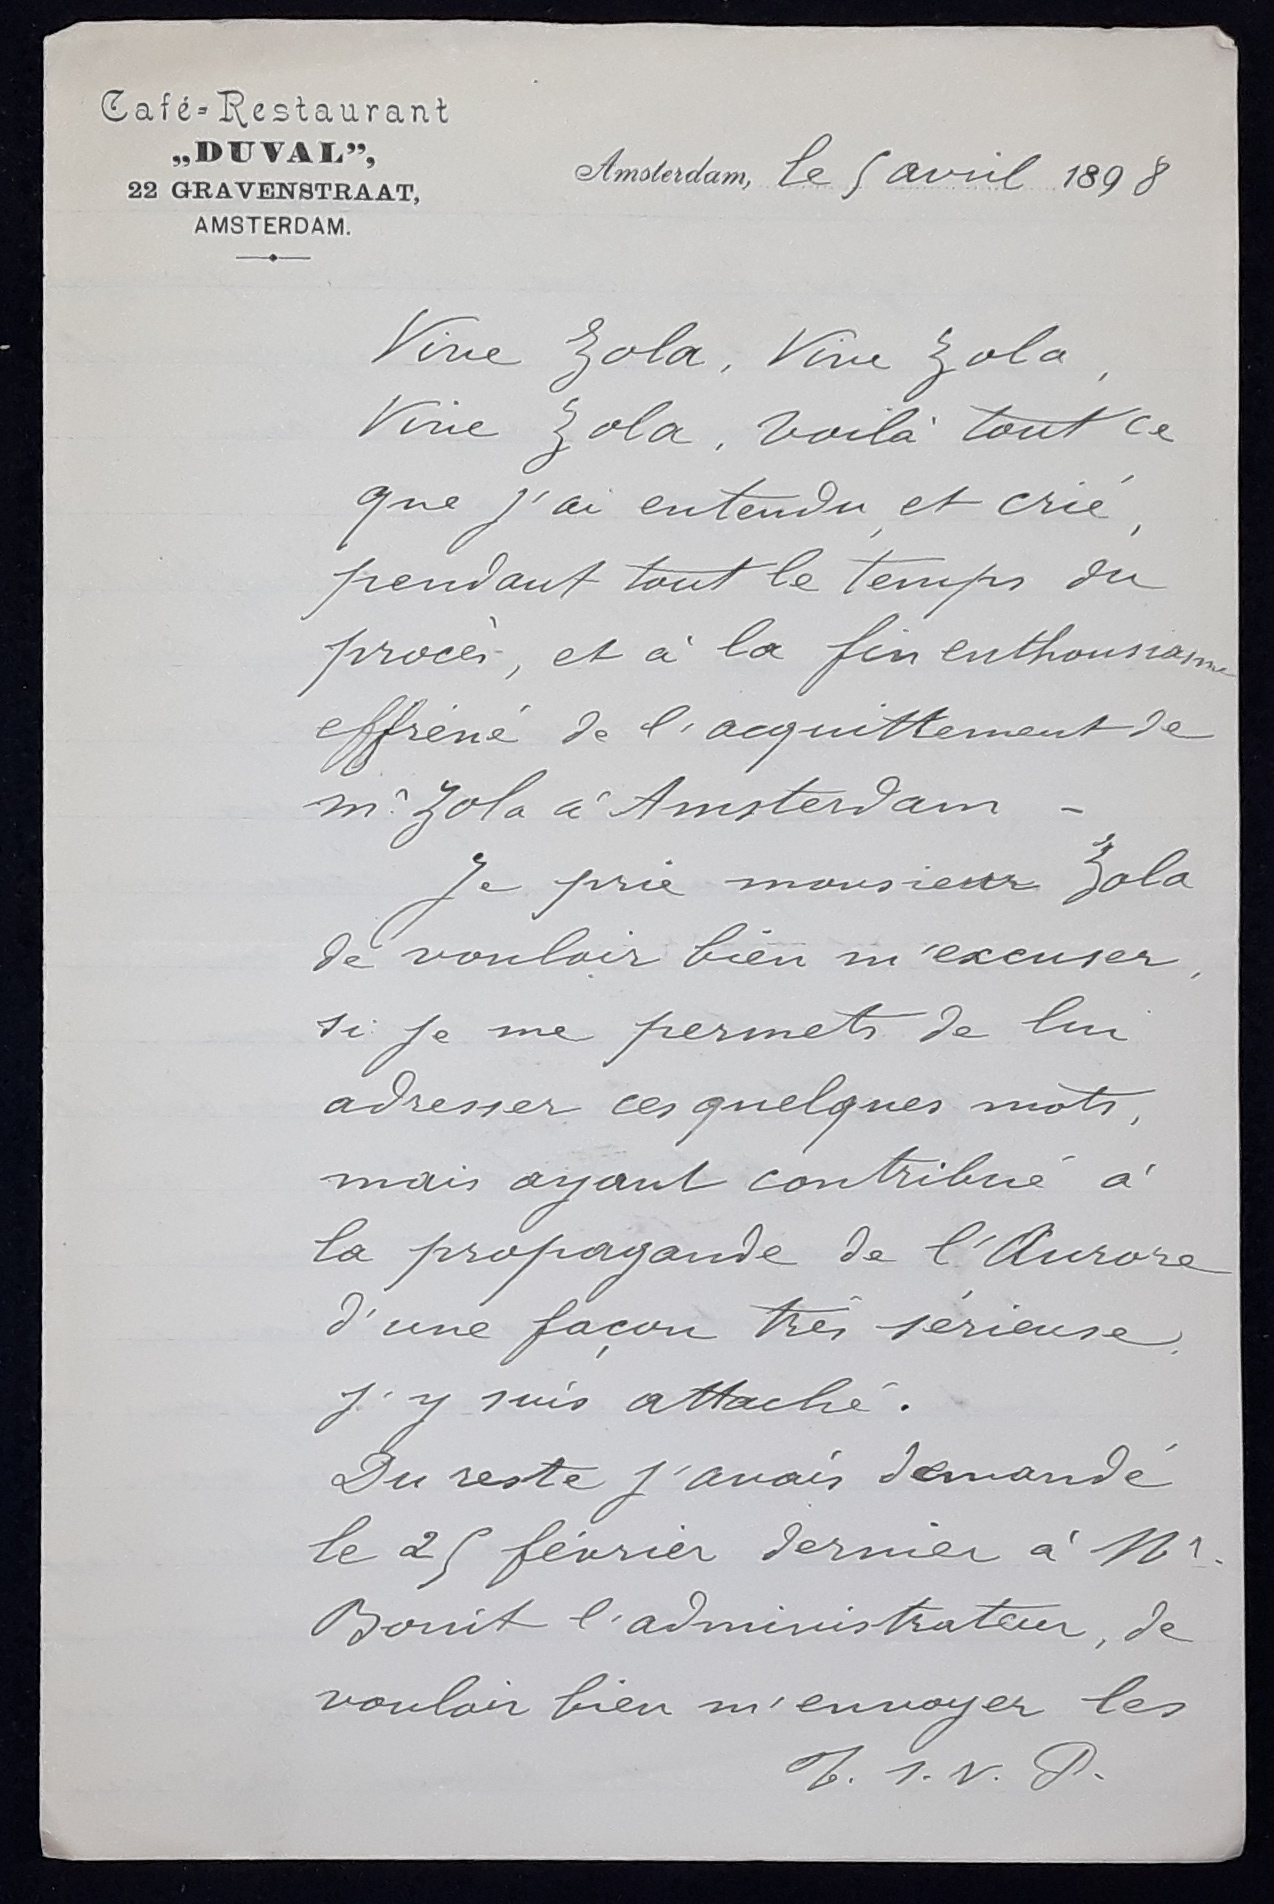 Café-Restaurant
„DUVAL”,
22 GRAVENSTRAAT,
AMSTERDAM.
Amsterdam, le 5 avril 1898
Vive Zola, Vive Zola,
Vive Zola, voilà tout ce
que j'ai entendu, et crié,
pendant tout le temps du
procès, et à la fin enthousiasme
effréné de l'acquittement de
mr. Zola à Amsterdam –
Je prie monsieur Zola
de vouloir bien m'excuser,
si je me permets de lui
adresser ces quelques mots,
mais ayant contribué à
la propagande de l'Aurore
d'une façon très sérieuse,
j'y suis attaché.
Du reste j'avais demandé
le 25 février dernier à Mr.
Bouit l'administrateur, de
vouloir bien m'envoyer les
T. S. V. P.